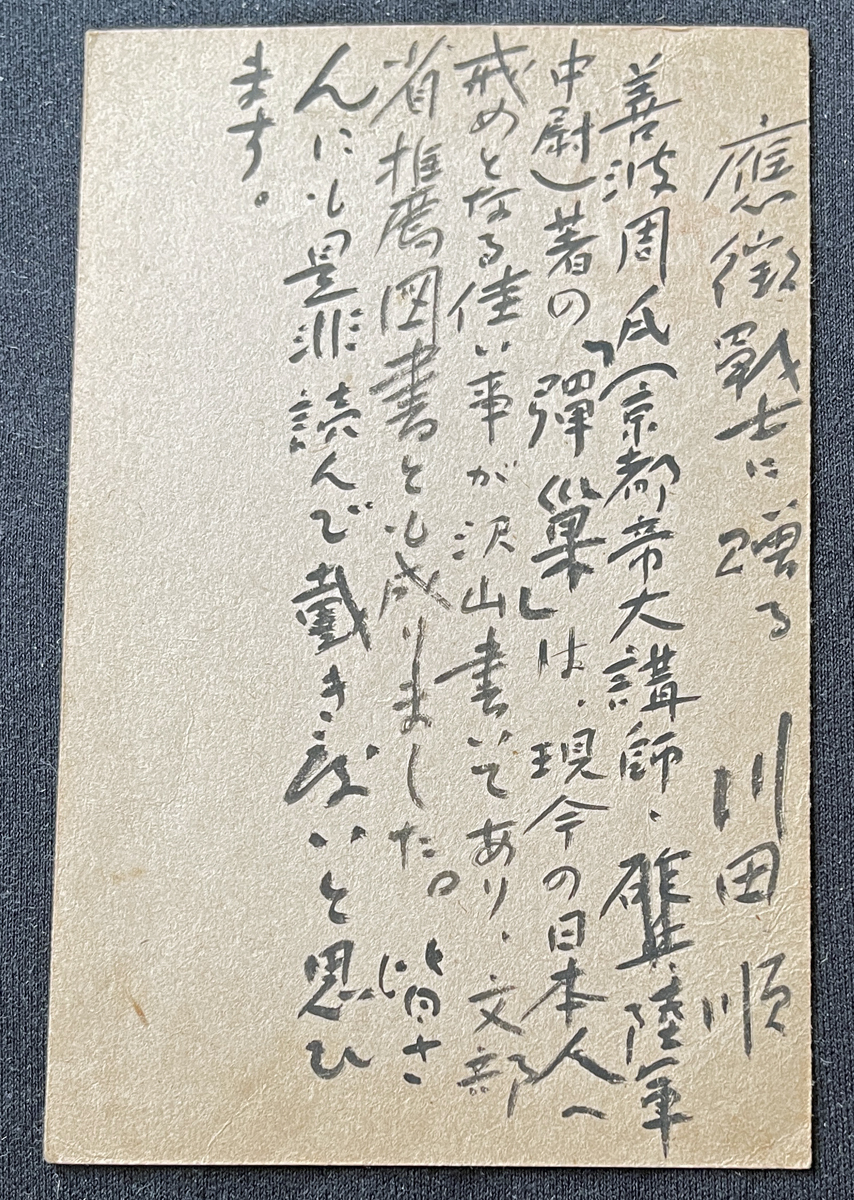 應徴戰士に贈る　川田　順
善波周氏（京都帝大講師、陸軍
中尉）著の「彈巣」は、現今の日本人へ
戒めとなる佳い事が沢山書いてあり、文部
省推薦図書とも成りました。皆さ
んにも是非読んで戴き度いと思ひ
ます。